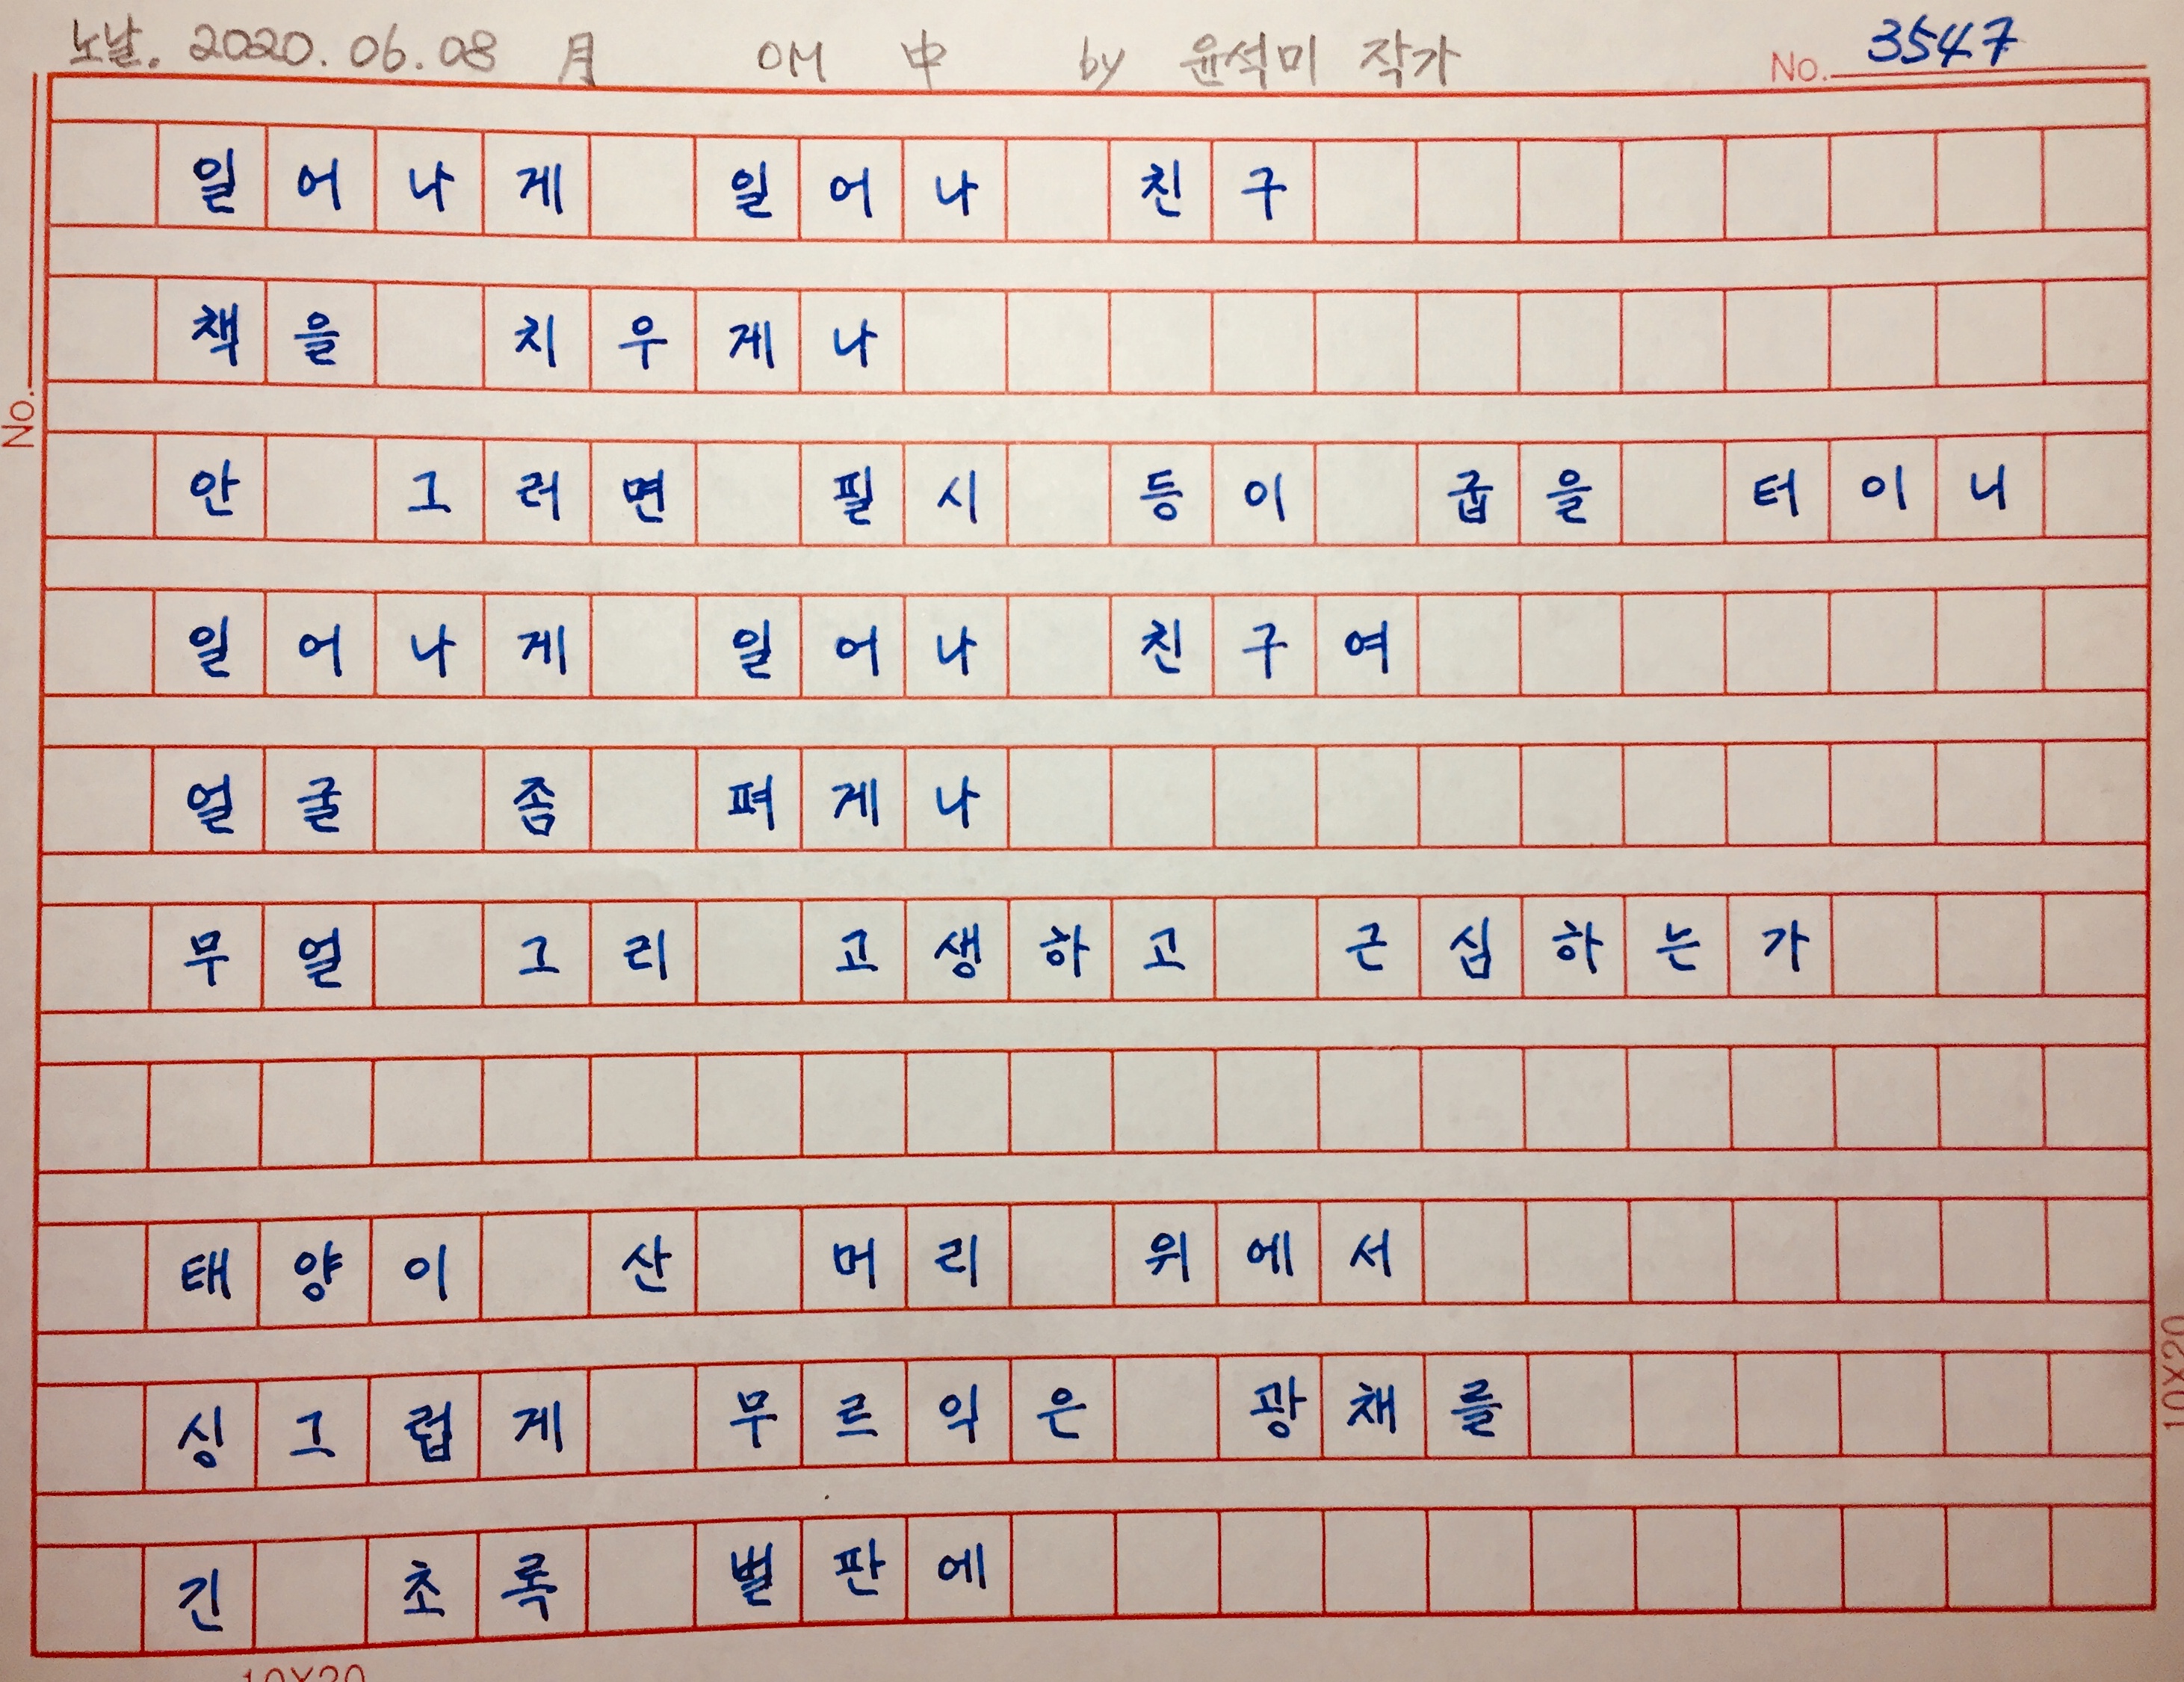 노날. 2020. 06. 08 月 OM 中 by 윤석미 작가
No. 3547
일어나게 일어나 친구
책을 치우게나
안 그러면 필시 등이 굽을 터이니
No.
일어나게 일어나 친구여
얼굴 좀 펴게나
무얼 그리 고생하고 근심하는가
태양이 산 머리 위에서
싱그럽게 무르익은 광채를
긴 초록 벌판에
10X20
10X20